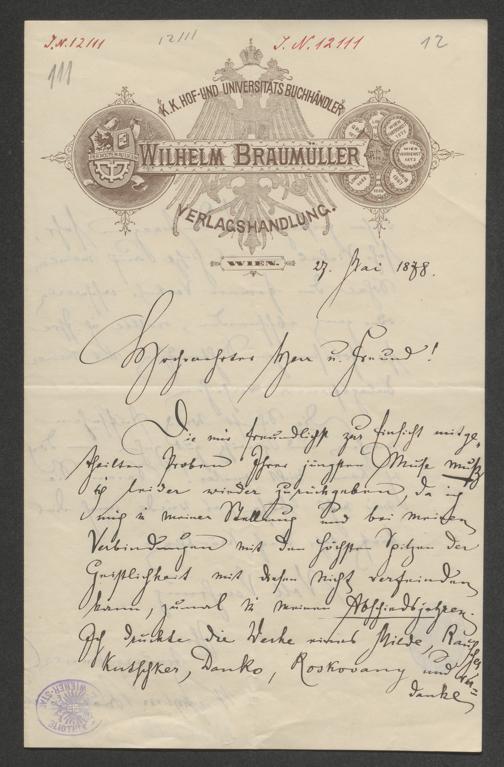 J.N. 12111
12111
J.N. 12111
12
111
K.K. HOF- UND UNIVERSITÄTS BUCHHÄNDLER
WILHELM BRAUMÜLLER
VERLAGSHANDLUNG.
WIEN.
27. Mai 1878.
Hochverehrter Herr u. Freund!
Die mir freundlichst zur Einsicht mitge-
theilten Proben Ihrer jüngsten Muse muß
ich leider wieder zurückgeben, da ich
mich in meiner Stellung und bei meinen
Verbindungen mit den höchsten Spitzen der
Geistlichkeit mit diesen nicht verfeinden
kann, zumal in meinen Abschiedsjahren.
Ich druckte die Werke eines Milde, Rauscher
Kutschker, Danko, Roskovany und
danke